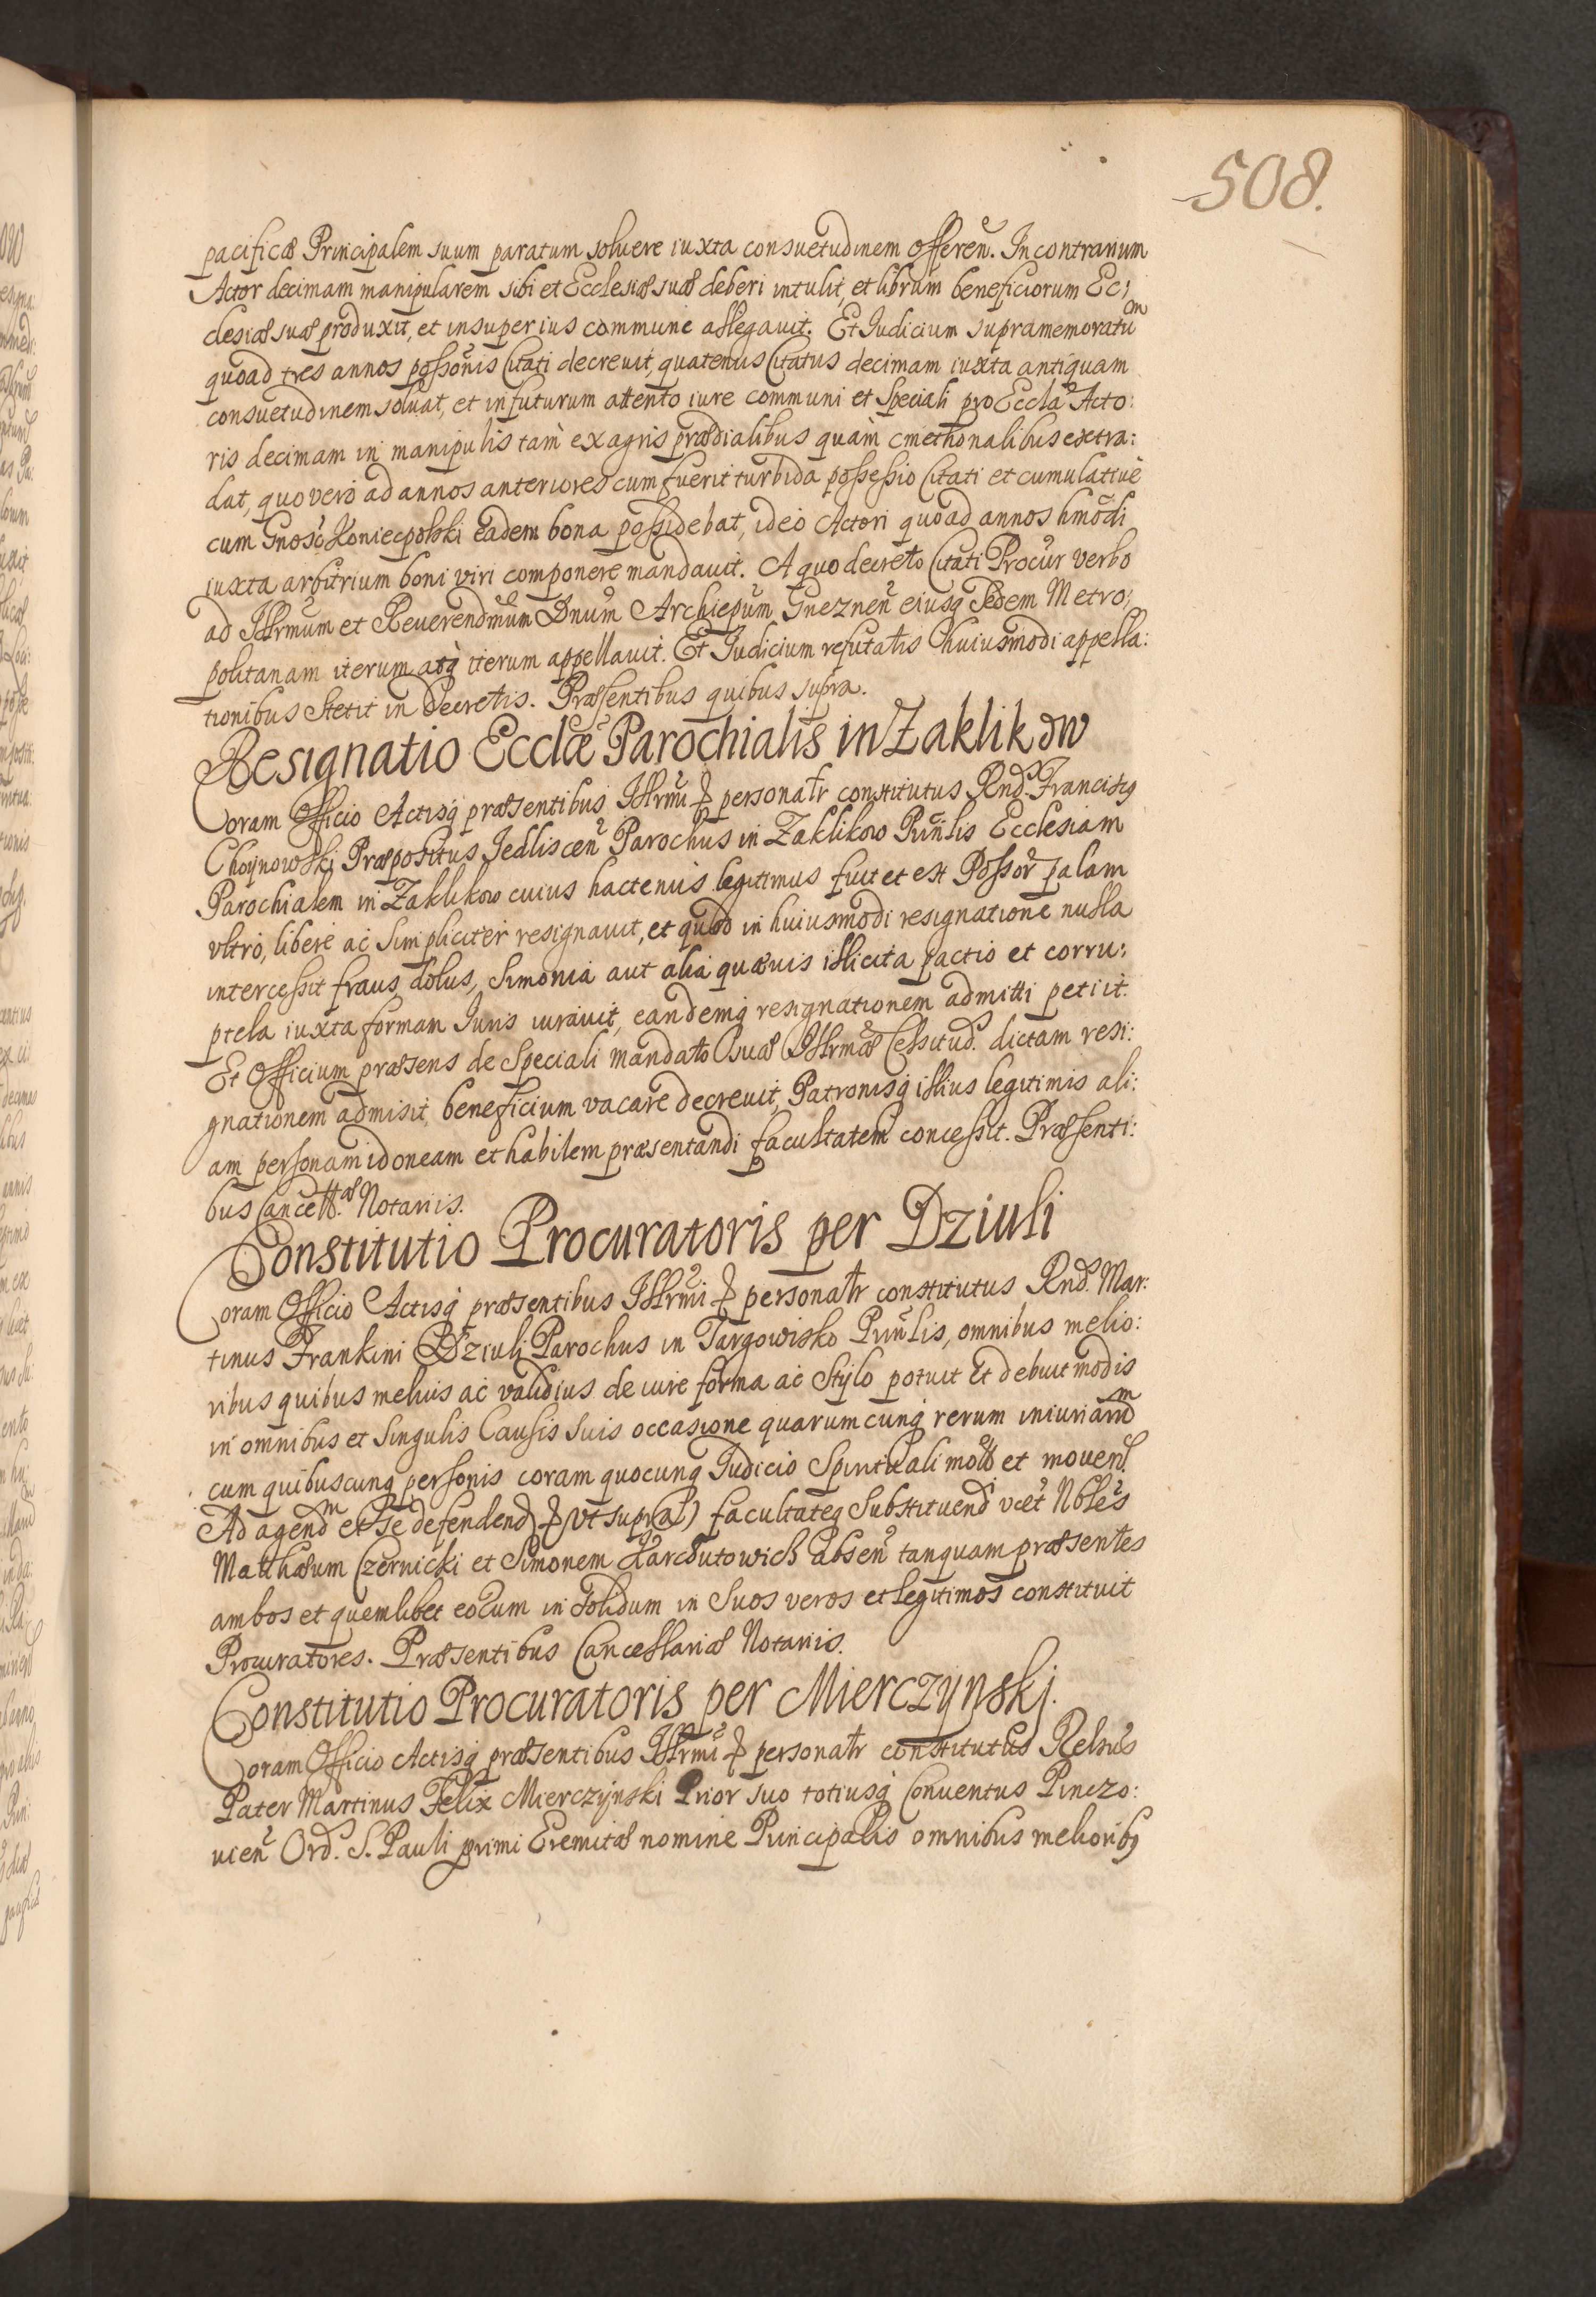 508.
pacificæ Principalem suum paratum soluere iuxta consuetudinem offereñ. In contrarium
Actor decimam manipularem sibi et Ecclesiæ suæ deberi intulit, et librum beneficiorum Ec:
clesiæ suæ produxit, et insuper ius commune allegauit. Et Iudicium supramemoratũ
quoad tres annos possõnis Citati decreuit, quatenus Citatus decimam iuxta antiquam
consuetudinem soluat, et in futurum attento iure communi et Speciali pro Eccla Acto:
ris decimam in manipulis tam ex agris prædialibus quàm cmethonalibus extra:
dat, quo vero ad annos anteriores cum fuerit turbida possessio Citati et cumulatiuè
cum Gnoso Koniecpolski eadem bona possidebat, ideo Actori quoad annos hmõdi
iuxta arbitrium boni viri componere mandauit. A quo decreto Citati Procur verbo
ad Illrmum et Reuerendmum Dnum Archiepum Gneznen eiusq Sedem Metro:
politanam iterum atq iterum appellauit. Et Iudicium refutatis huiusmodi appella:
tionibus stetit in decretis. Præsentibus quibus supra.
Resignatio Ecclæ Parochialis in Zaklikow
Coram Officio Actisq præsentibus Illrmi & personalr constitutus Rnd. Francisg
Choynowski Præpositus Jedliscen Parochus in Zaklikow Punlis Ecclesiam
Parochialem in Zaklikow cuius hactenus legitimus fuit et est Possor palam
vltrò, libere ac simpliciter resignauit, et quod in huiusmodi resignatione nulla
intercessit fraus, dolus, Simonia aut alia quæuis illicita pactio et corru:
ptela iuxta formam Iuris iurauit, eandemq resignationem admitti petiit.
Et Officium præsens de Speciali mandato Suæ Illrmæ Celsitud. dictam resi:
gnationem admisit, beneficium vacare decreuit, Patronisq illius legitimis ali:
am personam idoneam et habilem præsentandi facultatem concessit. Præsenti:
bus Cancell.æ Notariis.
Constitutio Procuratoris per Dziuli
Coram Officio Actisq præsentibus Illrmi & personalr constitutus Rnd. Mar:
tinus Frankini Dziuli Parochus in Targowisko Punlis, omnibus melio:
ribus quibus melius ac validius de iure forma ac Stylo potuit et debuit modis
in omnibus et Singulis Causis Suis occasione quarumcunq rerum iniuriarum
cum quibuscunq personis coram quocunq Iudicio Spirituali mot et mouend.
Ad agendm et se defendend & (vt supra) facultateq Substituendi vcet Nbles
Matthæum Czernicki et Simonem Karchutowich absen tanquam præsentes
ambos et quemlibet eocum in Solidum in Suos veros et legitimos constituit
Procuratores. Præsentibus Cancellariæ Notariis.
Constitutio Procuratoris per Mierczynski.
Coram Officio Actisq præsentibus Illrmi & personalr constitutus Relsus
Pater Martinus Felix Mierczynski Prior suo totiusq Conuentus Pinczo:
uien Ord. S. Pauli primi Eremitæ nomine Principalis omnibus melioribg